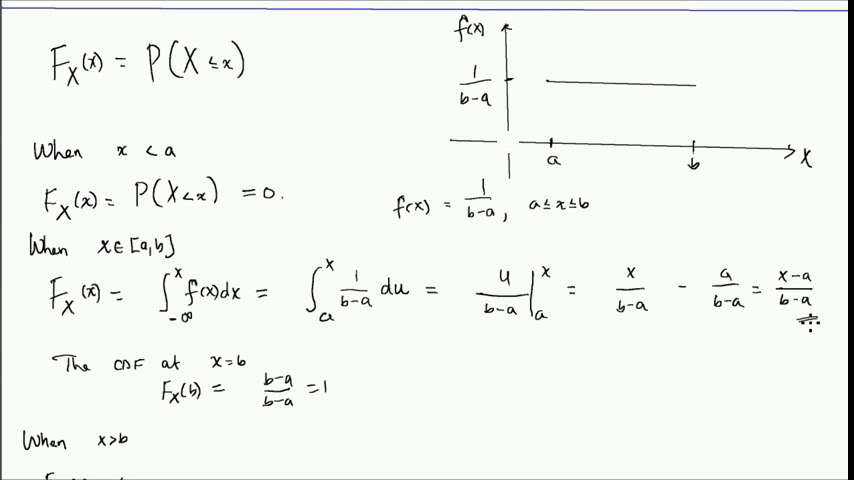 F_X(x) = P(X ≤ x)
f(x)
1/(b-a)
a b x
f(x) = 1/(b-a), a ≤ x ≤ b
When x < a
F_X(x) = P(X < x) = 0.
When x ∈ [a, b]
F_X(x) = ∫_{-∞}^{x} f(x)dx = ∫_{a}^{x} 1/(b-a) du = u/(b-a) |_{a}^{x} = x/(b-a) - a/(b-a) = (x-a)/(b-a)
The CDF at x=b
F_X(b) = (b-a)/(b-a) = 1
When x>b